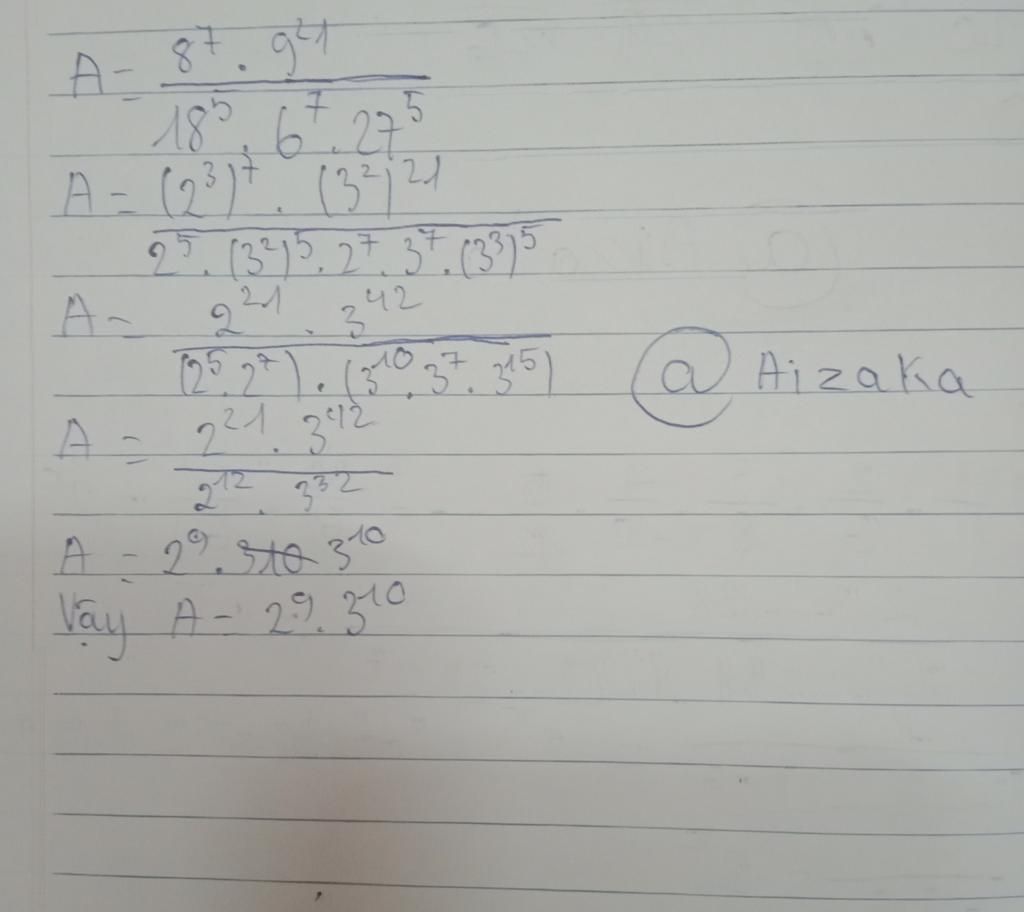 A = 8^7 . 9^21 / 18^5 . 6^7 . 27^5
A = (2^3)^7 . (3^2)^21 / 2^5 . (3^2)^5 . 2^7 . 3^7 . (3^3)^5
A = 2^21 . 3^42 / (2^5 . 2^7) . (3^10 . 3^7 . 3^15)
@ Aizaka
A = 2^21 . 3^42 / 2^12 . 3^32
A = 2^9 . 310 3^10
Vậy A = 2^9 . 3^10